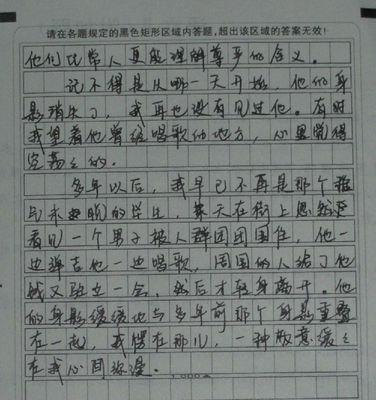 请在各题规定的黑色矩形区域内答题,超出该区域的答案无效!
他们比常人更能理解尊严的含义。
记不得是从哪一天开始,他们的身
影消失了,我再也没有见过他。有时
我望着他曾经唱歌的地方,心里觉得
空荡荡的。
多年以后,我早已不再是那个
的学生,天在街上忽然
看见一个男子被人群团团围住,他一
边弹吉他一边唱歌,周围的人给了他
钱又驻立一会,然后才转身离开。他
的身影缓缓地与多年前那个身影重叠
在一起,我愣在那儿,一种敬意缓缓
在我心间弥漫。